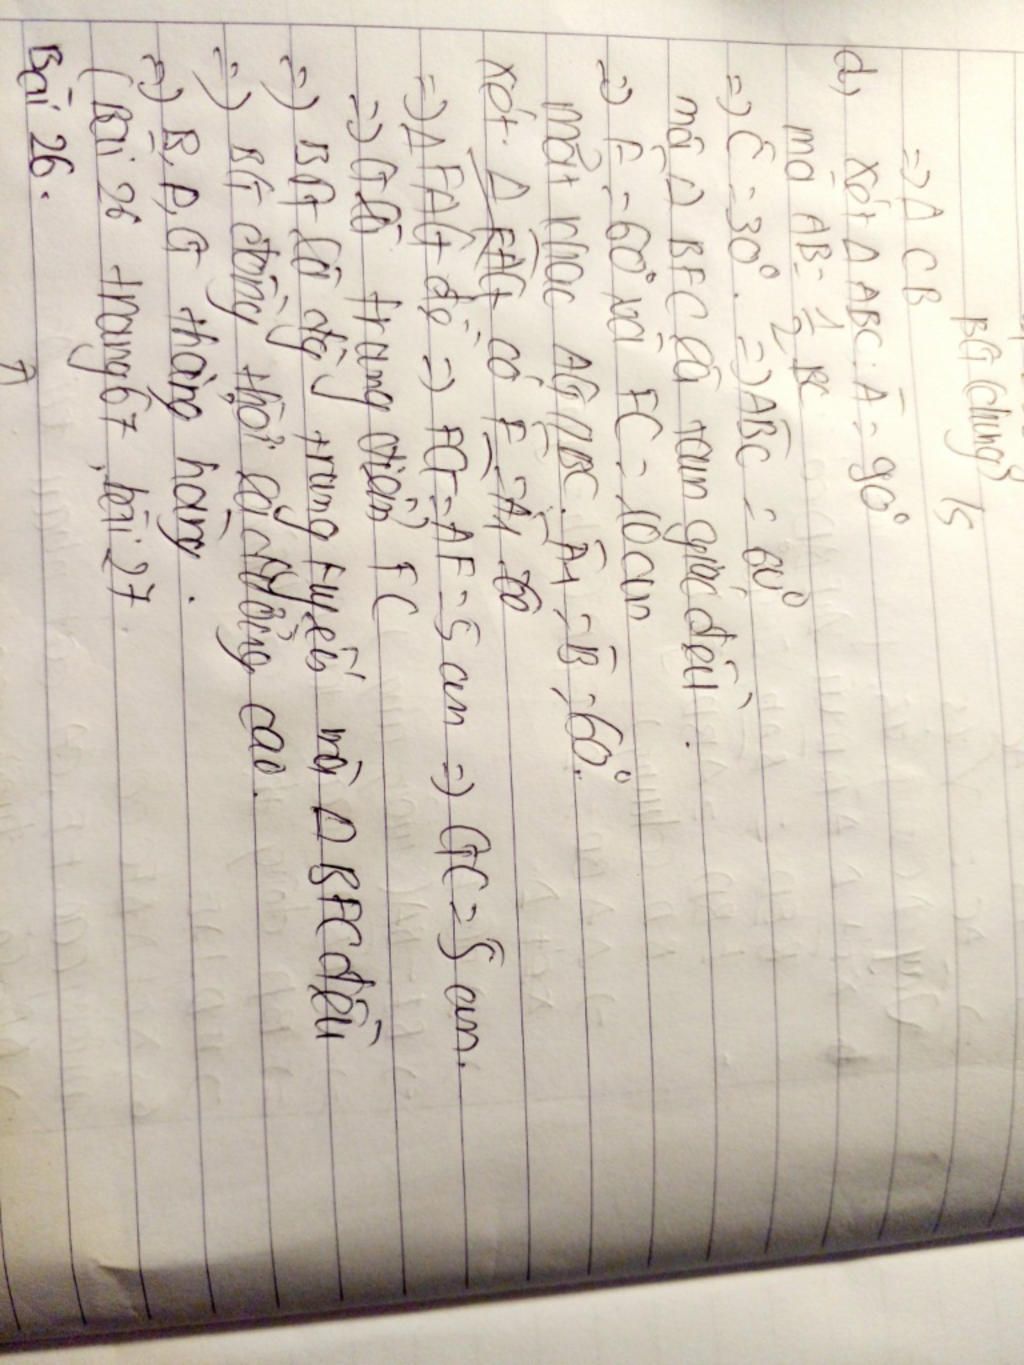 BG chung
=) Δ CB
d, Xét Δ ABC: Â = 90°
mà AB = 1/2 BC
=) Ĉ = 30°. =) ABC = 60°
mà Δ BFC là tam giác đều.
=) F = 60° và FC = 10cm
mặt khác AG // BC. A1 = B = 60°.
Xét Δ FAG có F = A1 = 60
=) Δ FAG đều =) FG = AF = 5 cm =) GC = 5 cm.
=) G là trung điểm FC
=) BG là đg trung tuyến mà Δ BFC đều
=) BG đồng thời là đường cao.
=) B, D, G thẳng hàng.
(Bài 26 trang 67, bài 27
Bài 26.